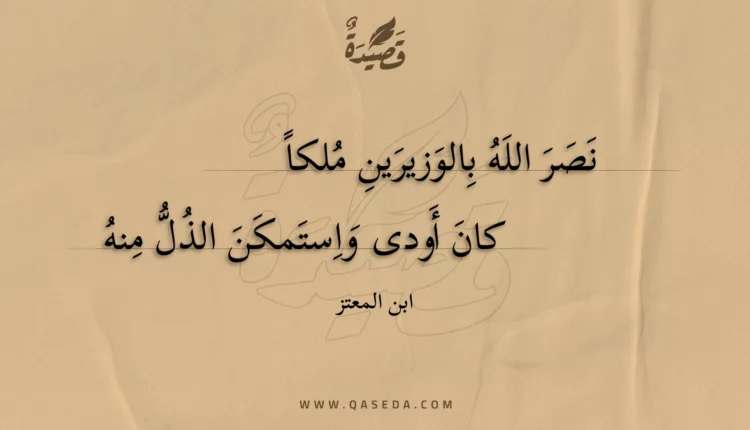 قَصِيْدَةٌ
نَصَرَ اللَهُ بِالوَزيرَينِ مُلكاً
كانَ أَودى وَاِستَمكَنَ الذُلُّ مِنهُ
ابن المعتز
WWW.QASEDA.COM